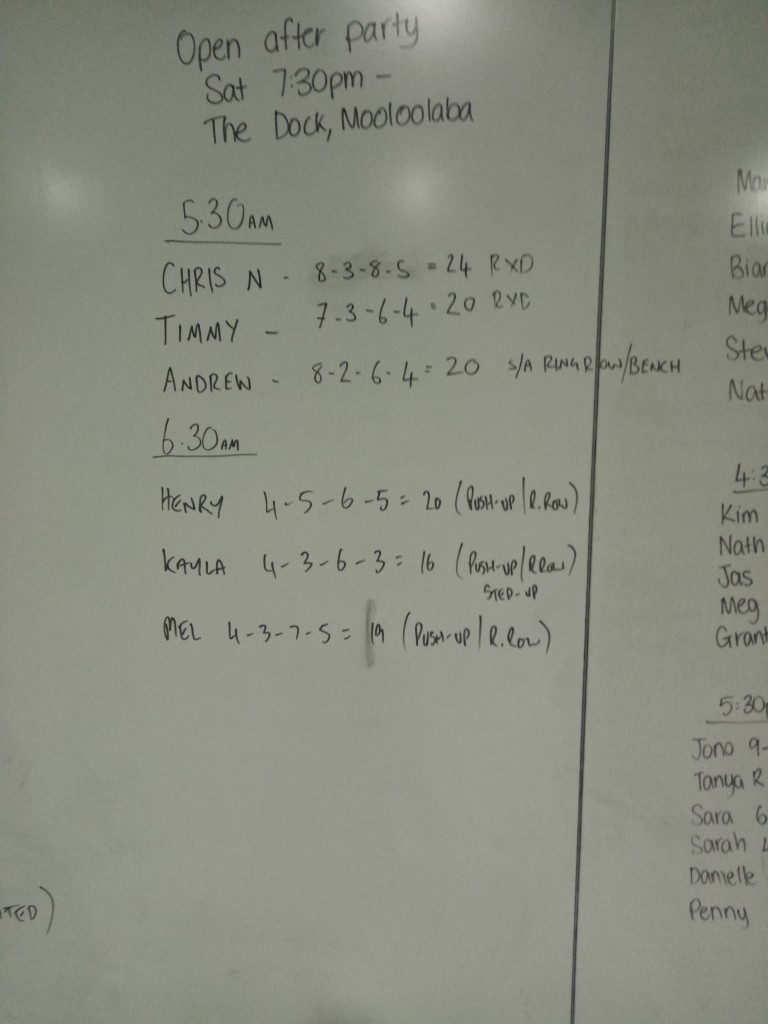 Open after party
Sat 7:30pm -
The Dock, Mooloolaba
5.30AM
CHRIS N - 8-3-8-5 = 24 RXD
TIMMY - 7-3-6-4 = 20 RXD
ANDREW - 8-2-6-4 = 20 S/A RING ROW/BENCH
6.30AM
HENRY 4-5-6-5 = 20 (PUSH-UP/R.ROW)
KAYLA 4-3-6-3 = 16 (PUSH-UP/R.ROW)
STEP-UP
MEL 4-3-7-5 = 19 (PUSH-UP/R.ROW)
TED)
Mar
Elli
Bian
Meg
Stev
Nat
4:3
Kim
Nath
Jas
Meg
Grant
5:30p
Jono 9-
Tanya R
Sara 6
Sarah
Danielle
Penny